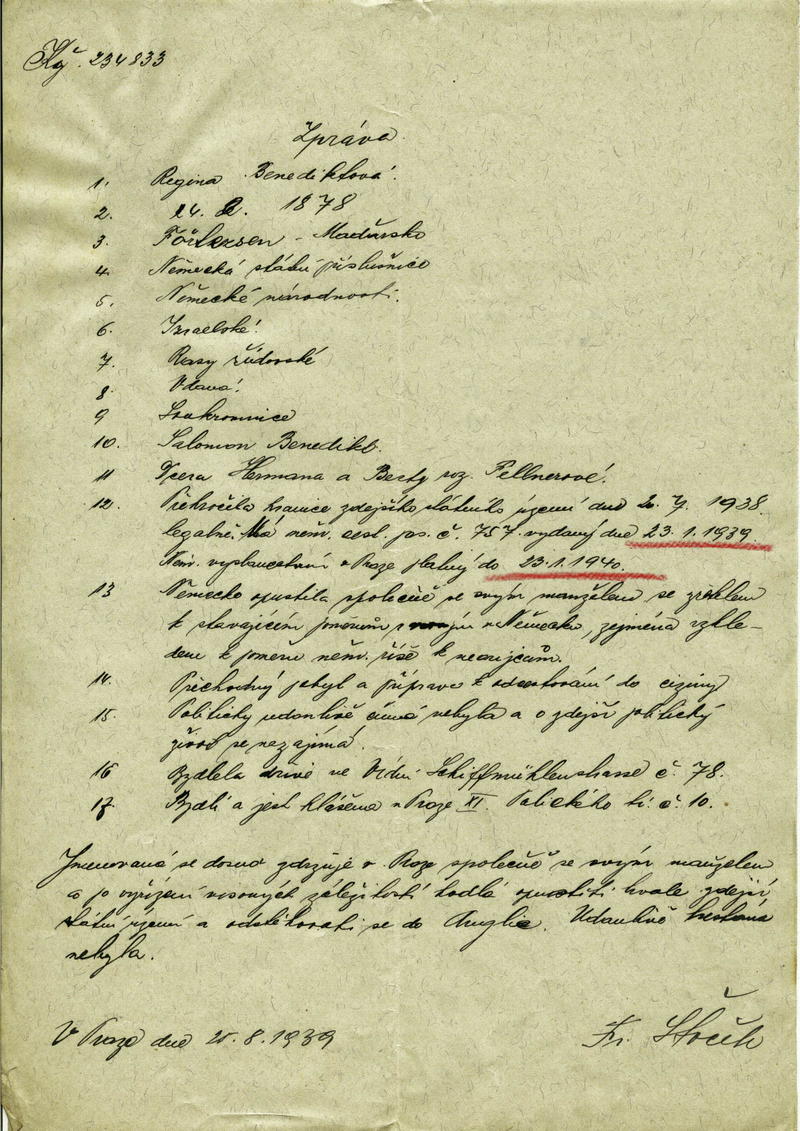 Kř. 234833
Zpráva
1. Regina Benediktová.
2. 24. 2. 1878
3. - Maďarsko
4. Německá státní příslušnice
5. Německé národnosti.
6. Izraelské.
7. Rasy židovské
8. Vdaná.
9 Soukromnice
10. Salomon Benedikt.
11 Dcera Hermana a Berty roz. Fellnerové.
12. Překročila hranice zdejšího státního území dne 20. 7. 1938
legálně. Má něm. cest. ps. č. 757. vydaný dne 23. 1. 1939
Něm. vyslanectvím v Praze platný do 23. 1. 1940.
13 Německo opustila společně se svým manželem se zřetelem
k stávajícím poměrům v Německu, zejména vzhle-
dem k poměru něm. říše k nearijcům.
14. Přechodný pobyt a příprava k odcestování do ciziny
15 Politicky udanlivě činná nebyla a o zdejší politický
život se nezajímá.
16 Bydlela dříve ve Vídni Schiffmühlenstrasse č. 78.
17. Bydlí a jest hlášena v Praze XI. Palackého tř. č. 10.
Jmenovaná se dosud zdržuje v Praze společně se svým manželem
a po vyřízení záležitostí hodlá opustiti zdejší
státní území a odstěhovati se do Anglie. Udanlivě trestána
nebyla.
V Praze dne 25. 8. 1939
Fr.